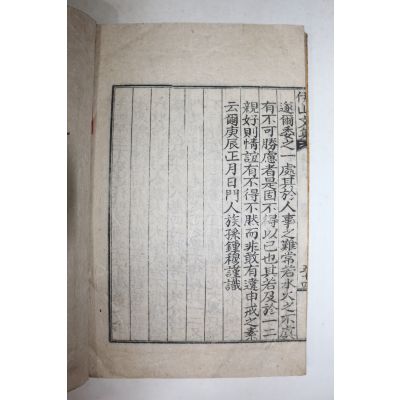 遂爾委之一處且於人事之難常若水火之不虞
有不可勝慮者是固不得以已也其若及於一二
親好則情誼有不得不然而非敢有違申戒之素
云爾庚辰正月日門人族孫鍾穆謹識
山文集